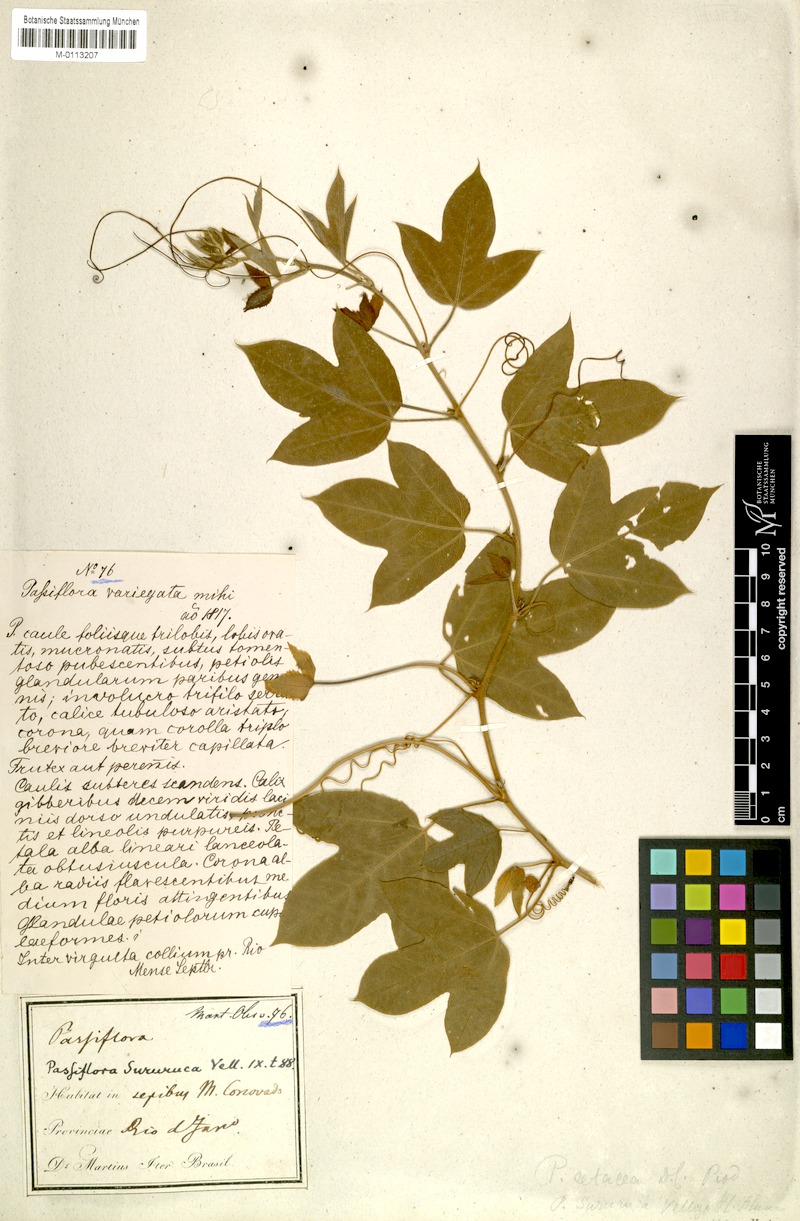 Botanische Staatssammlung München
M-0113207
No 76
Passiflora variegata mihi
ao 1817.
P. caule foliisque trilobis, lobis ova-
tis, mucronatis, subtus tomen-
toso pubescentibus, petiolis
glandularum paribus gem-
nis; involucro trifilo serra
to, calice tubuloso aristato,
corona, quam corolla triplo
breviore breviter capillata.
Frutex aut perennis.
Caulis subteres scandens. Calix
gibberibus decem viridis laci
niis dorso undulatis
tis et lineolis purpureis. Pe-
tala alba lineari lanceola-
ta obtusiuscula. Corona al-
ba radiis flavescentibus me
dium floris attingentibus
Glandulae petiolorum cup
laeformes.
Inter virgulta collium pr. Rio
Mense Septbr.
Mart. Obs. 76.
Passiflora
Passiflora Sururuca Vell. IX. t 88.
Habitat in sepibus M. Corcovado
Provinciae Rio d Jan.
Dr Martius Iter Brasil.
BOTANISCHE
STAATSSAMMLUNG
MÜNCHEN
0 1 2 3 4 5 6 7 8 9 10
cm
copyright reserved
P. setacea D.C. Prod
P. Sururuca Velloz Fl. Flum